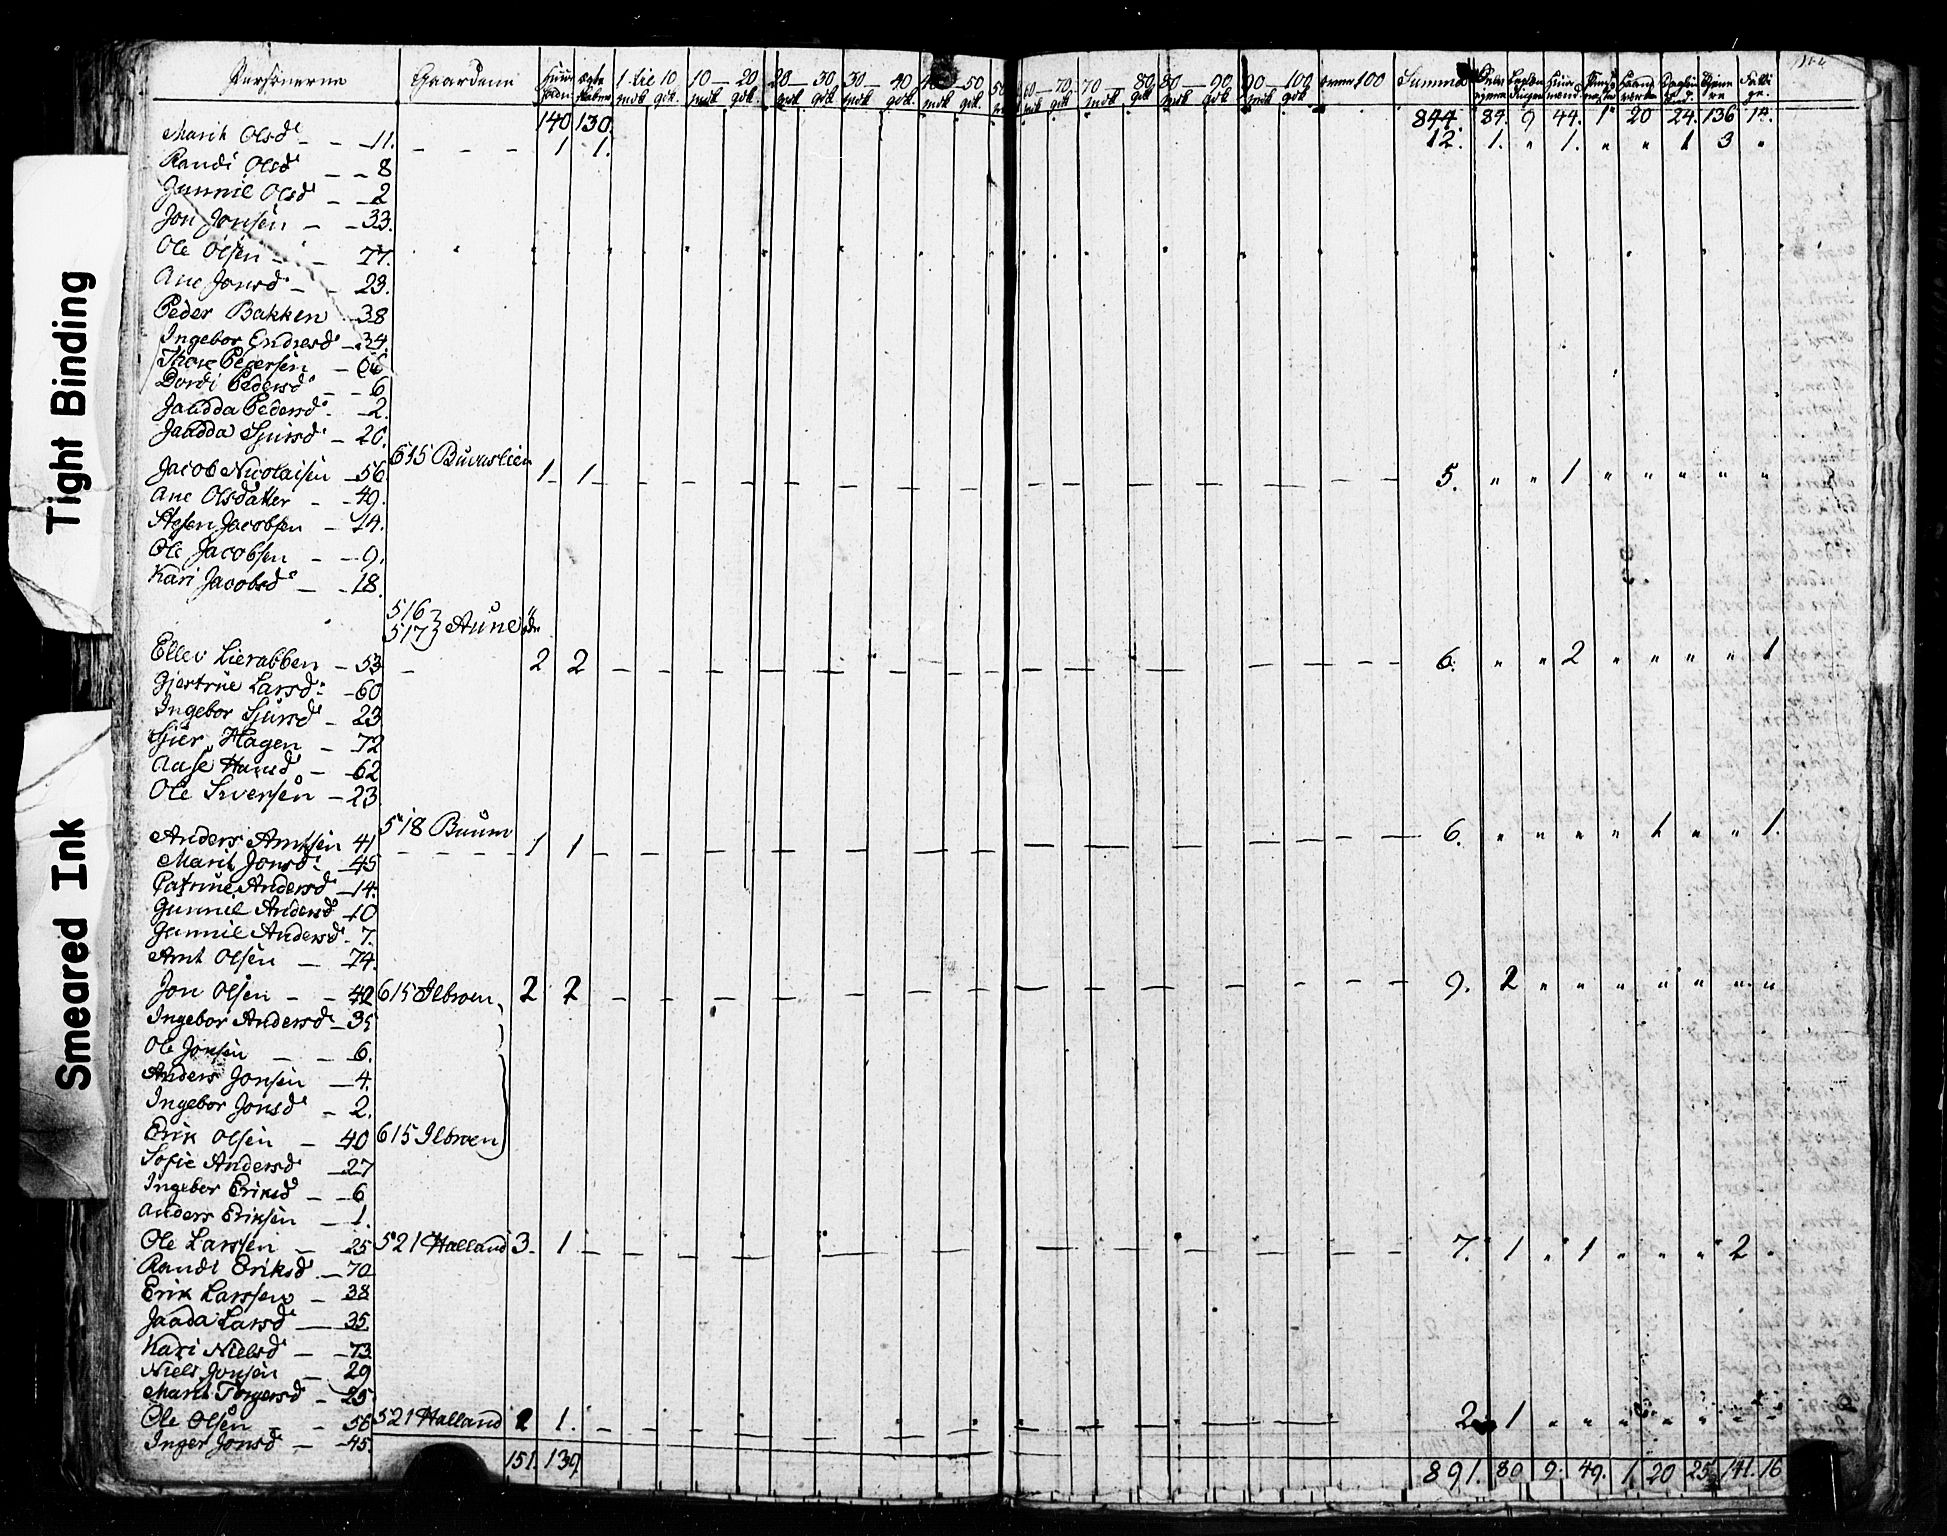 Tight Binding
Smeared Ink
Personerne Gaardene 1 til 10 10 — 20 20 — 30 30 — 40 40 — 50 60 — 70 70 — 80 80 — 90 90 — 100 over 100 Summa
mdk gdk. mdk gdk. mdk gdk. mdk gdk. mdk gdk. mdk gdk mdk gdk mdk gdk mdk gdk
140 130. 844. 84. 9 44. 1 20 24. 136 14.
Marit Olsd — — 11. — — — 1 1. 12. 1. „ 1. „ „ 1 3 „
Randi Olsd — — 8
Gunnil Olsd — — 2
Jon Jonsen — — 33.
Ole Olsen — — 77.
Ane Jonsd — — 23.
Peder Bakken 38
Ingebor Endresd — 34.
Thore Pedersen —
Dordi Pedersd — — 6
Jaadda Pedersd — 2.
Jaadda Sjursd — 26.
615 Buvaslien
Jacob Nicolaisen — 56 1 — 1 — 5. „ „ 1 „ „ „ „ „
Ane Olsdatter — 49.
Stefen Jacobsen — 14.
Ole Jacobsen — — 9.
Kari Jacobsd — — 18.
516
517 } Aune
Ellev Lierabben — 53 — 2 2 — 6. „ „ 2 „ „ „ „ 1
Gjertrue Larsd — 60
Ingebor Sjursd — 23
Sjur Hagen — 72
Aase Hansd — 62
Ole Iversen — 23
518 Buum
Anders Arntsen 41 — — — 1 1 — 6. „ „ „ „ 1 „ „ 1.
Marit Jonsd — 45
Catrine Andersd — 14.
Gunnil Andersd — 10
Gunnil Andersd — 7.
Arnt Olsen — 74.
Jon Olsen — — 42 615 Ilbroen 2 2 — 9. 2 „ „ „ „ „ „ „
Ingebor Andersd — 35
Ole Jonsen — — 6.
Anders Jonsen — 4.
Ingebor Jonsd — 2.
Erik Olsen — 40 615 Ilbroen
Sofie Andersd — 27
Ingebor Eriksd — — 6
Anders Eriksen — 1.
Ole Larssen — 25 521 Halland 3 — 1 — 7. 1 „ 1 „ „ „ 2 „
Randi Eriksd — 70
Erik Larssen — 38
Jaada Larsd — 35
Kari Nielsd — — 73
Niels Jonsen — 29
Marit Torgersd — 25
Ole Olsen — — 56 521 Halland 2 1. — 2 1 „ „ „ „ „ „ „
Inger Jonsd — 45.
151. 139 891. 89 9. 49. 1. 20 25 141. 16